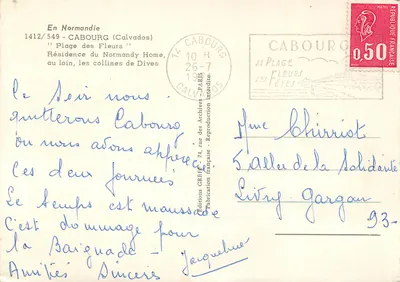 En Normandie
1412/549 - CABOURG (Calvados)
" Plage des Fleurs "
Résidence du Normandy Home,
au loin, les collines de Dives
14 CABOURG
10 H
26-7
CALVADOS
CABOURG
SA PLAGE
FLEURS
RÉPUBLIQUE FRANÇAISE
0,50
Ce Soir nous
quitterons Cabourg
où nous avons apprécié
ces deux journées
Le temps est maussade
C'est dommage pour
la Baignade -
Amitiés Sincères
Jacqueline
Mme Chirriot
5 allée de la Solidarité
Livry Gargan
93-
Éditions GREFF, 78, rue des Archives - PARIS
Fabrication française - Reproduction interdite.